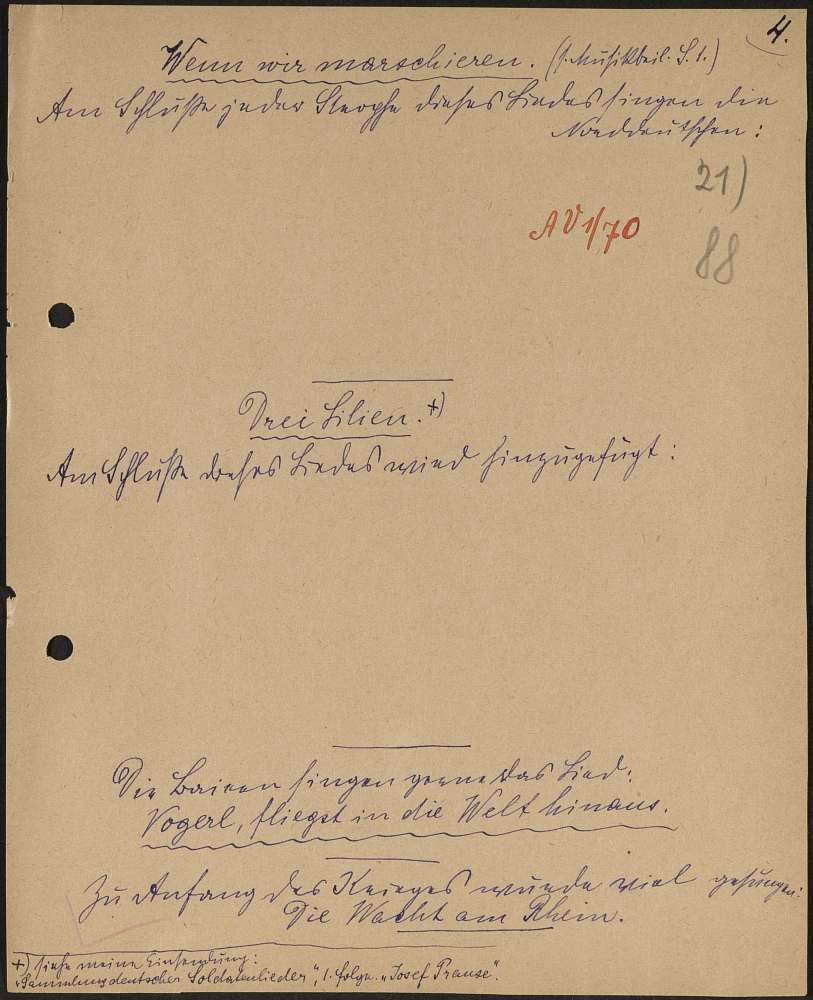 4.
Wenn wir marschieren. (s. Musikteil. S. 1.)
Am Schluße jeder Strophe dieses Liedes singen die
Norddeutschen:
21)
AV 1/70
88
Drei Lilien. +)
Am Schluße dieses Liedes wird hinzugefügt:
Die Baiern singen gerne das Lied:
Vogerl, fliegst in die Welt hinaus.
Zu Anfang des Krieges wurde viel gesungen:
Die Wacht am Rhein.
+) siehe meine Einsendung:
"Sammlung deutscher Soldatenlieder", 1. Folge. "Josef Prause".